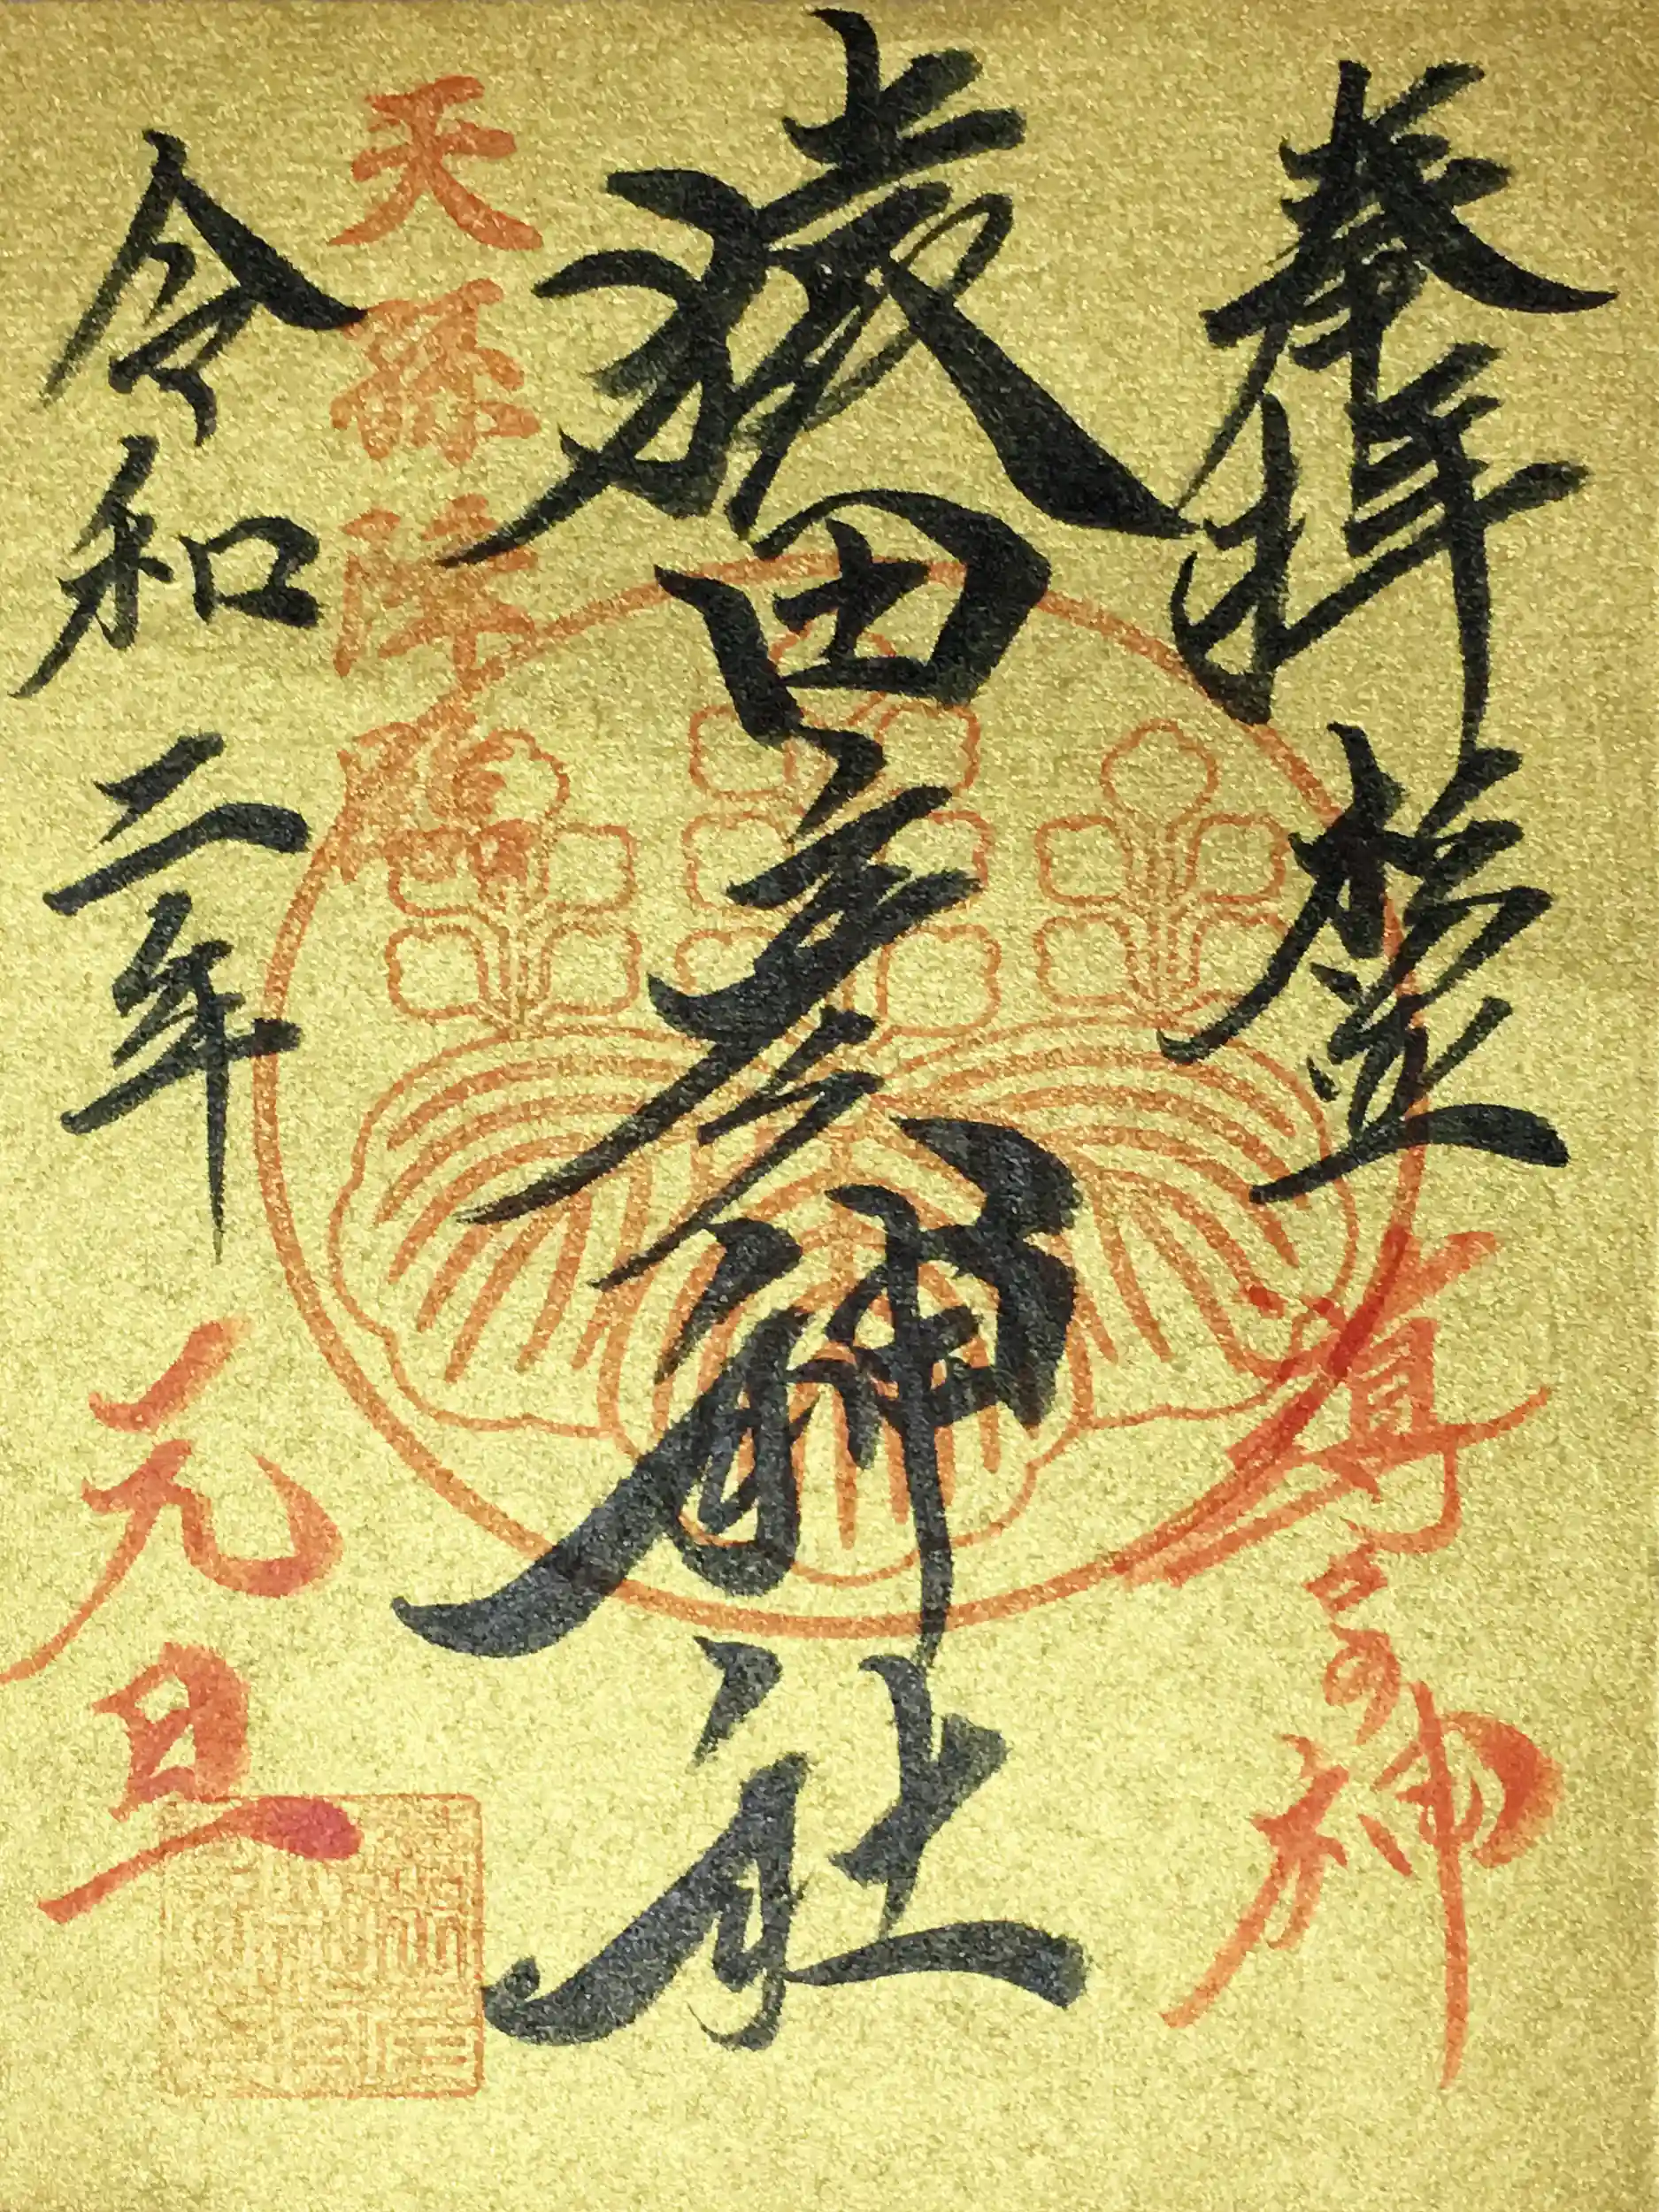 奉拝
導きの神
猿田彦神社
天孫降臨
令和二年
元旦